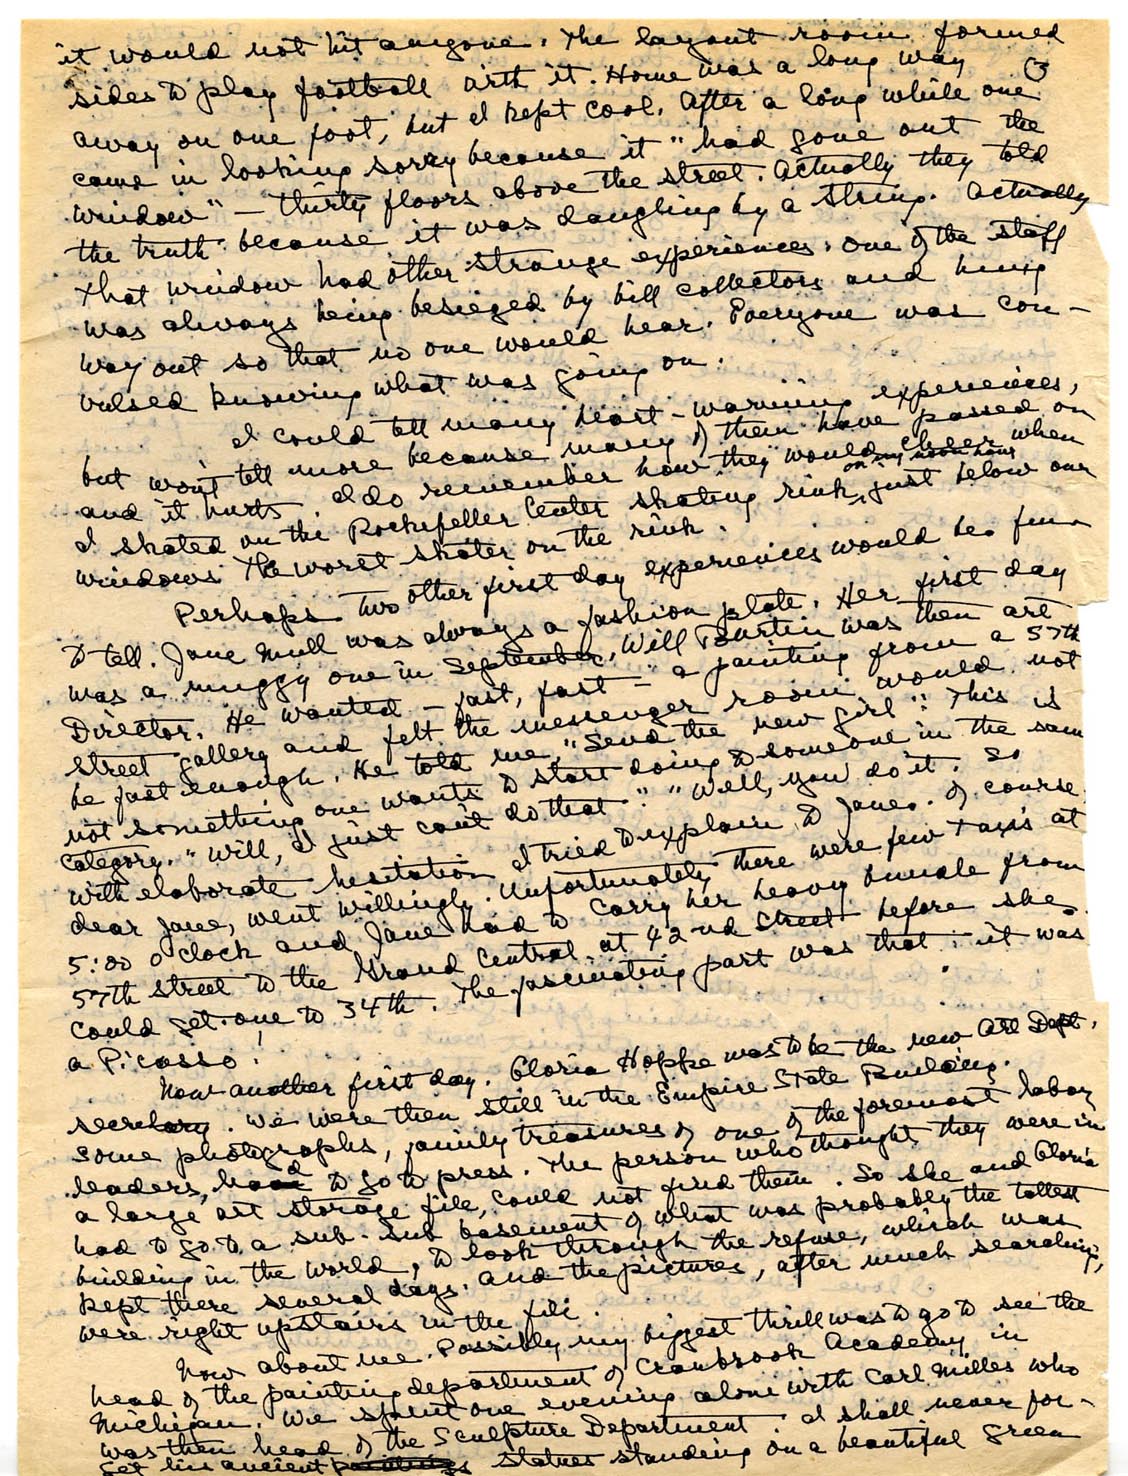 it would not hit anyone. The layout room formed
3
sides to play football with it. Home was a long way
away on one foot, but I kept cool. After a long while one
came in looking sorry because it "had gone out the
window" — thirty floors above the street. Actually they told
the truth because it was dangling by a string. Actually
that window had other strange experiences. One of the staff
was always being besieged by bill collectors and hung
way out so that no one would hear. Everyone was con-
vulsed knowing what was going on.
I could tell many heart-warming experiences,
but won't tell more because many of them have passed on
and it hurts. I do remember how they would when
on my noon hour
I skated on the Rockefeller Center skating rink, just below our
windows. The worst skater on the rink.
Perhaps two other first day experiences would be fun
to tell. Jane Mull was always a fashion plate. Her first day
was a muggy one in September. Will Burtin was then art
Director. He wanted — fast, fast — a painting from a 57th
street gallery and felt the messenger room would not
be fast enough. He told me, "Send the new girl". "This is
not something one wants to start doing to someone in the same
category." "Will, I just can't do that." "Well, you do it. So
with elaborate hesitation I tried to explain to Jane. Of course
dear Jane, went willingly. Unfortunately there were few taxis at
5:00 o'clock and Jane had to carry her heavy bundle from
57th street to the Grand Central at 42nd street before she
could get one to 34th. The fascinating part was that: it was
a Picasso!
Now another first day. Gloria Hoppe was to be the new Art Dept.
secretary. We were then still in the Empire State Building.
Some photographs, family treasures of one of the foremost labor
leaders, had to go to press. The person who thought they were in
a large art storage file, could not find them. So she and Gloria
had to go to a sub-sub basement of what was probably the tallest
building in the world, to look through the refuse, which was
kept there several days. And the pictures, after much searching,
were right upstairs in the file.
Now about me. Possibly my biggest thrill was to go to see the
head of the painting department of Cranbrook Academy in
Michigan. We spent one evening alone with Carl Milles who
was then head of the Sculpture Department. I shall never for-
get his ancient statues standing on a beautiful green